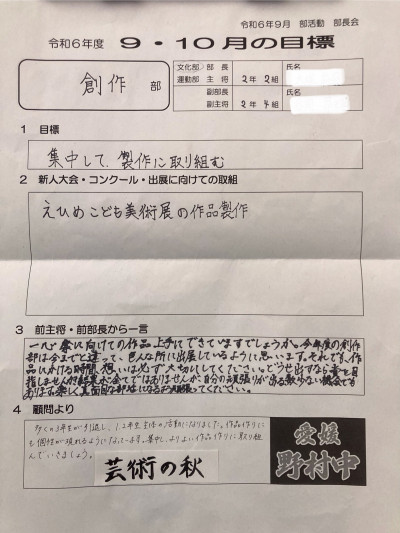 令和6年9月 部活動 部長会
令和6年度 9・10月の目標
創作 部
文化部 部長
運動部 主将
2年2組
氏名
副部長
副主将
2年4組
氏名
1 目標
集中して、製作に取り組む
2 新人大会・コンクール・出展に向けての取組
えひめこども美術展の作品製作
3 前主将・前部長から一言
祭に向けての作品上手にできていますでしょうか。今年度の創作
部は今までと違って、色んな所に出展しているように思います。それでも、作
品にかける時間、想いは必ず大切にしてください。どうせ出すなら賞を目
指しませんか結果が全てではありませんが、自分の頑張りが出る数少ない機会でも
あります。楽しく真面目な部活になるようお頑張ってください。
4 顧問より
多くの3年生が引退し、1,2年生主体の活動になりました。作品作りに
も個性が現れるようになってます。集中し、よりよい作品作りに取り組
んでいきましょう。
芸術の秋
愛媛
野村中